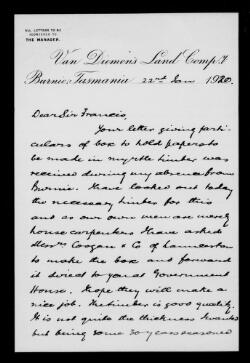 ALL LETTERS TO BE
ADDRESSED TO
THE MANAGER.
Van Diemen's Land Compy.
Burnie, Tasmania 22nd Jan 1920.
Dear Sir Francis,
Your letter giving parti-
culars of box to hold papers to
be made in myrtle timber was
received during my absence from
Burnie. I have looked out today
the necessary timber for this
and as our own men are merely
house carpenters I have asked
Messrs Coogan & Co of Launceston
to make the box and forward
it direct to you at Government
House. I hope they will make a
nice job. The timber is good quality.
It is not quite the thickness I wanted
but being some 30 years seasoned